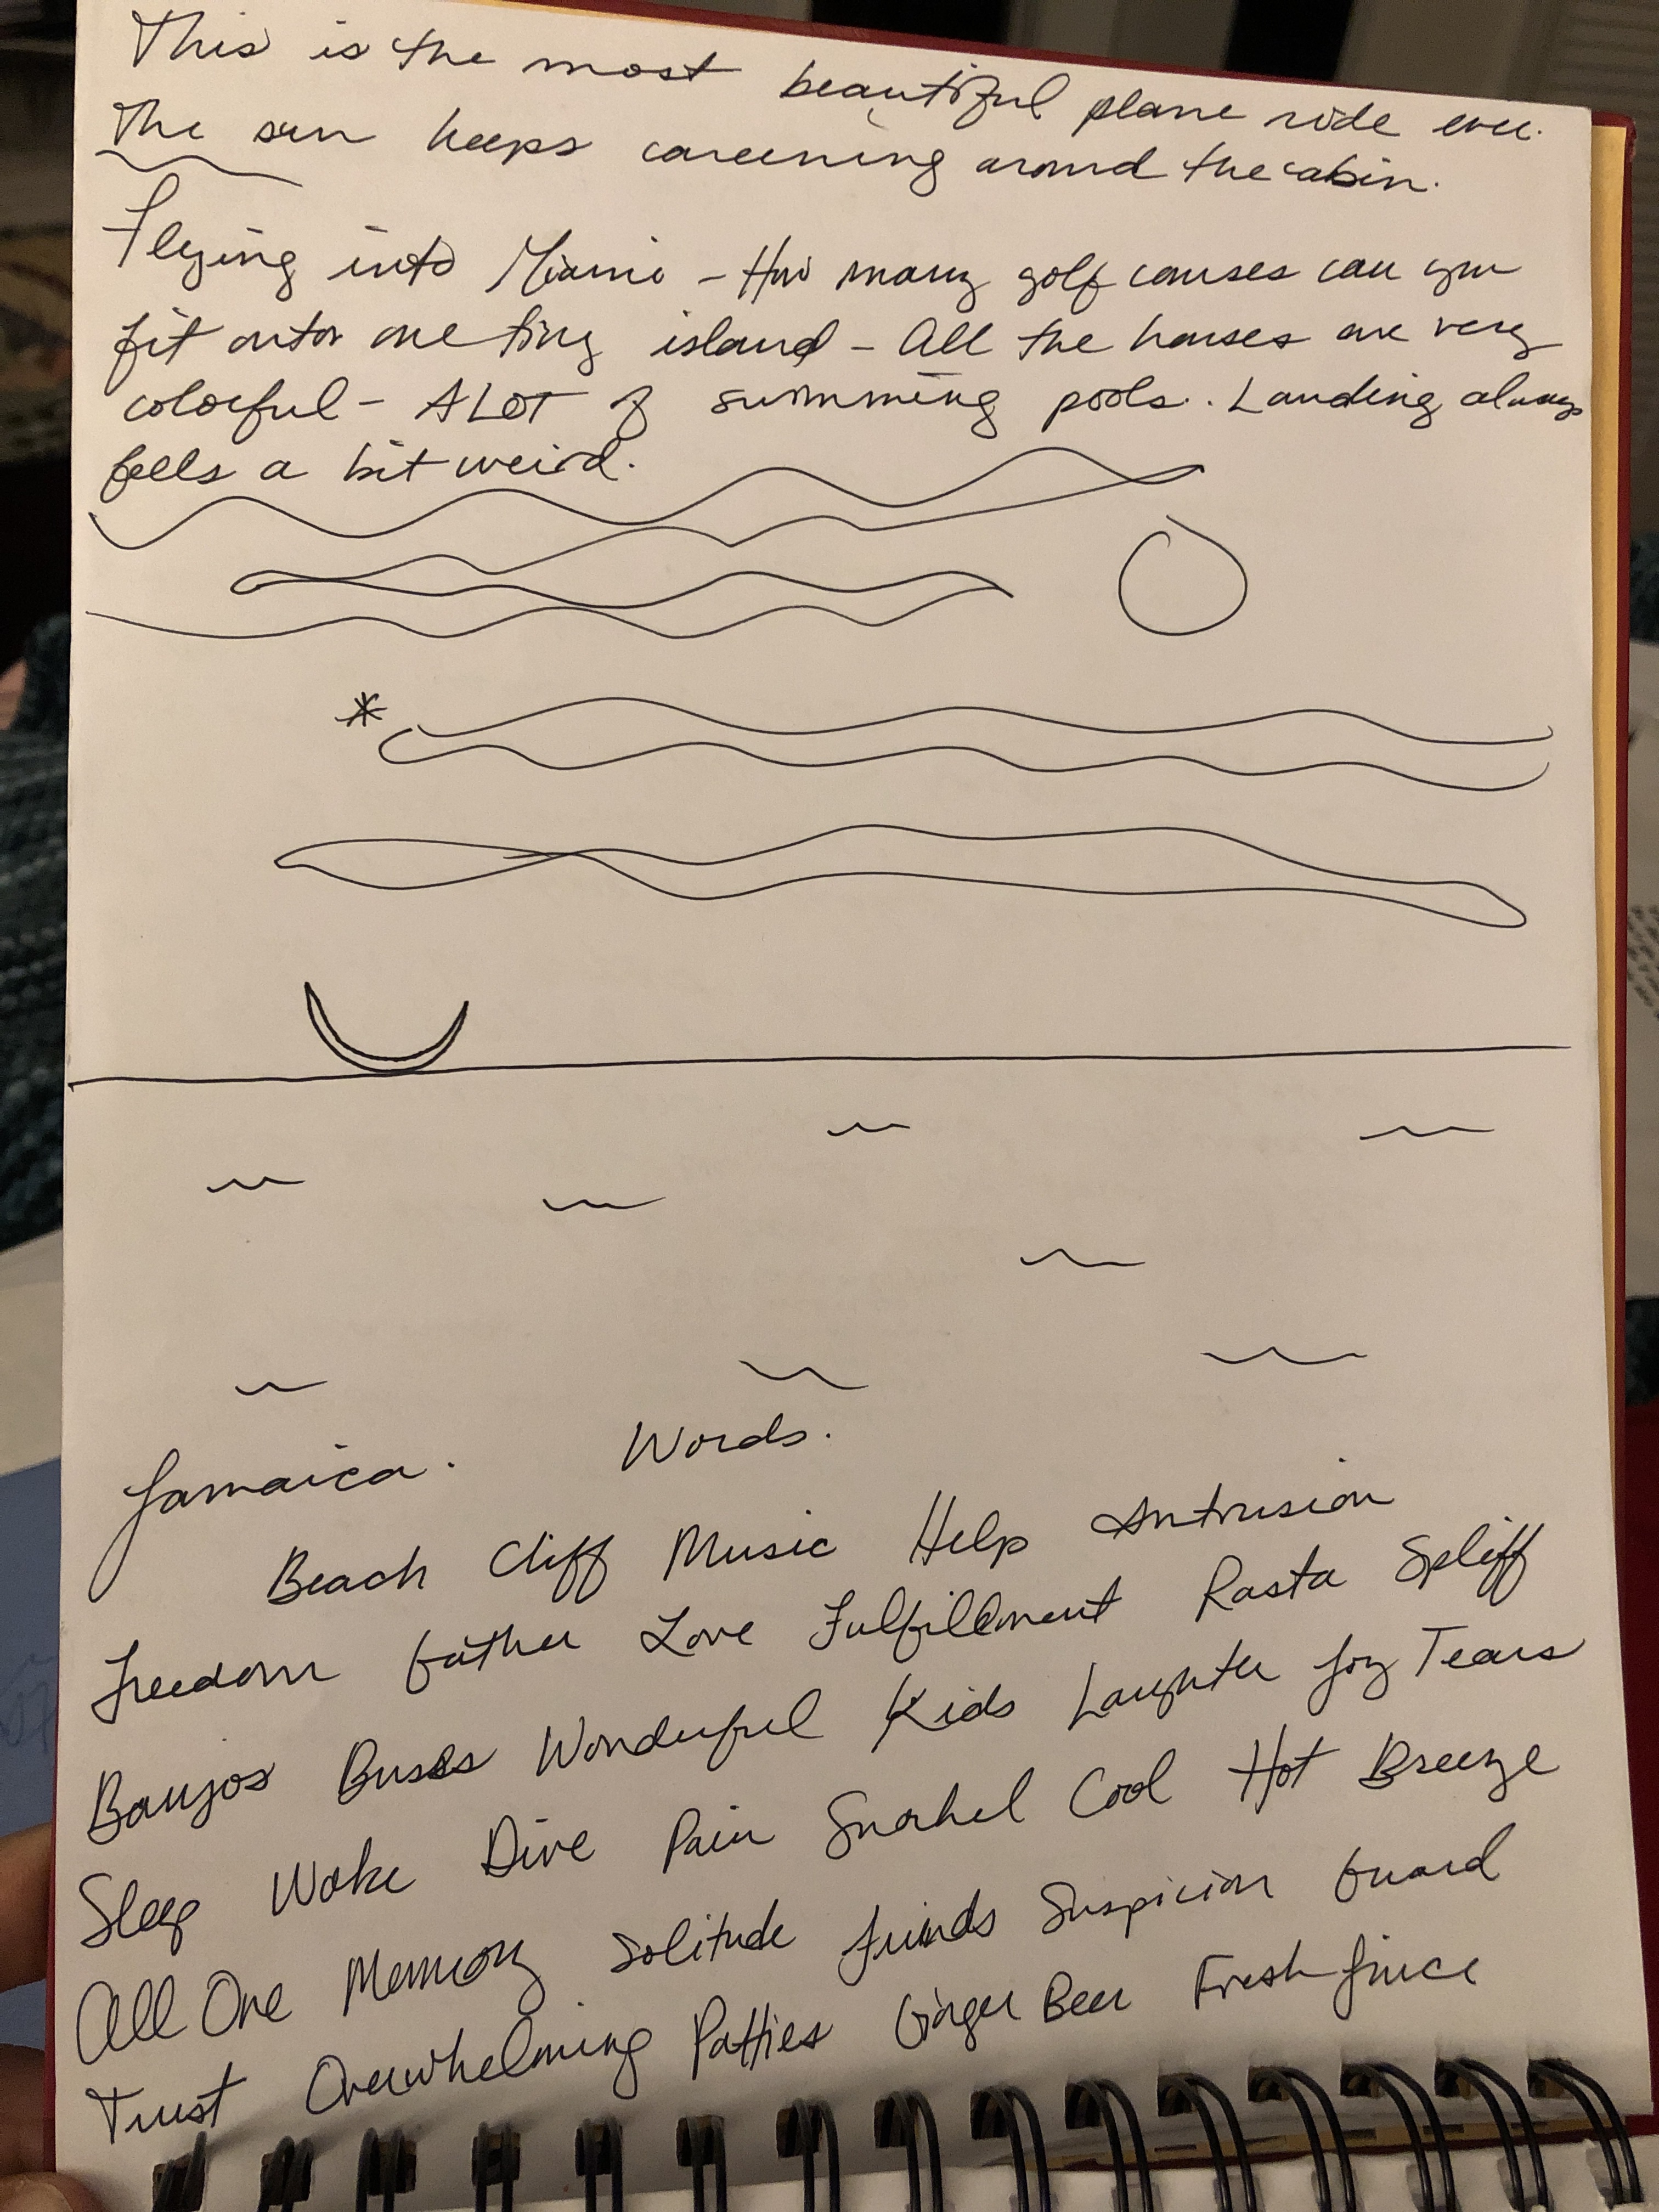 This is the most beautiful plane ride ever.
The sun keeps careening around the cabin.
Flying into Miami - How many golf courses can you
fit onto one tiny island - All the houses are very
colorful - A LOT of swimming pools. Landing always
feels a bit weird.
Jamaica. Words.
Beach Cliff Music Help Intrusion
Freedom Father Love Fulfillment Rasta Spliff
Banjos Buses Wonderful Kids Laughter Joy Tears
Sleep Woke Dive Pain Snorkel Cool Hot Breeze
All One Memory Solitude Friends Suspicion Guard
Trust Overwhelming Patties Ginger Beer Fresh Juice